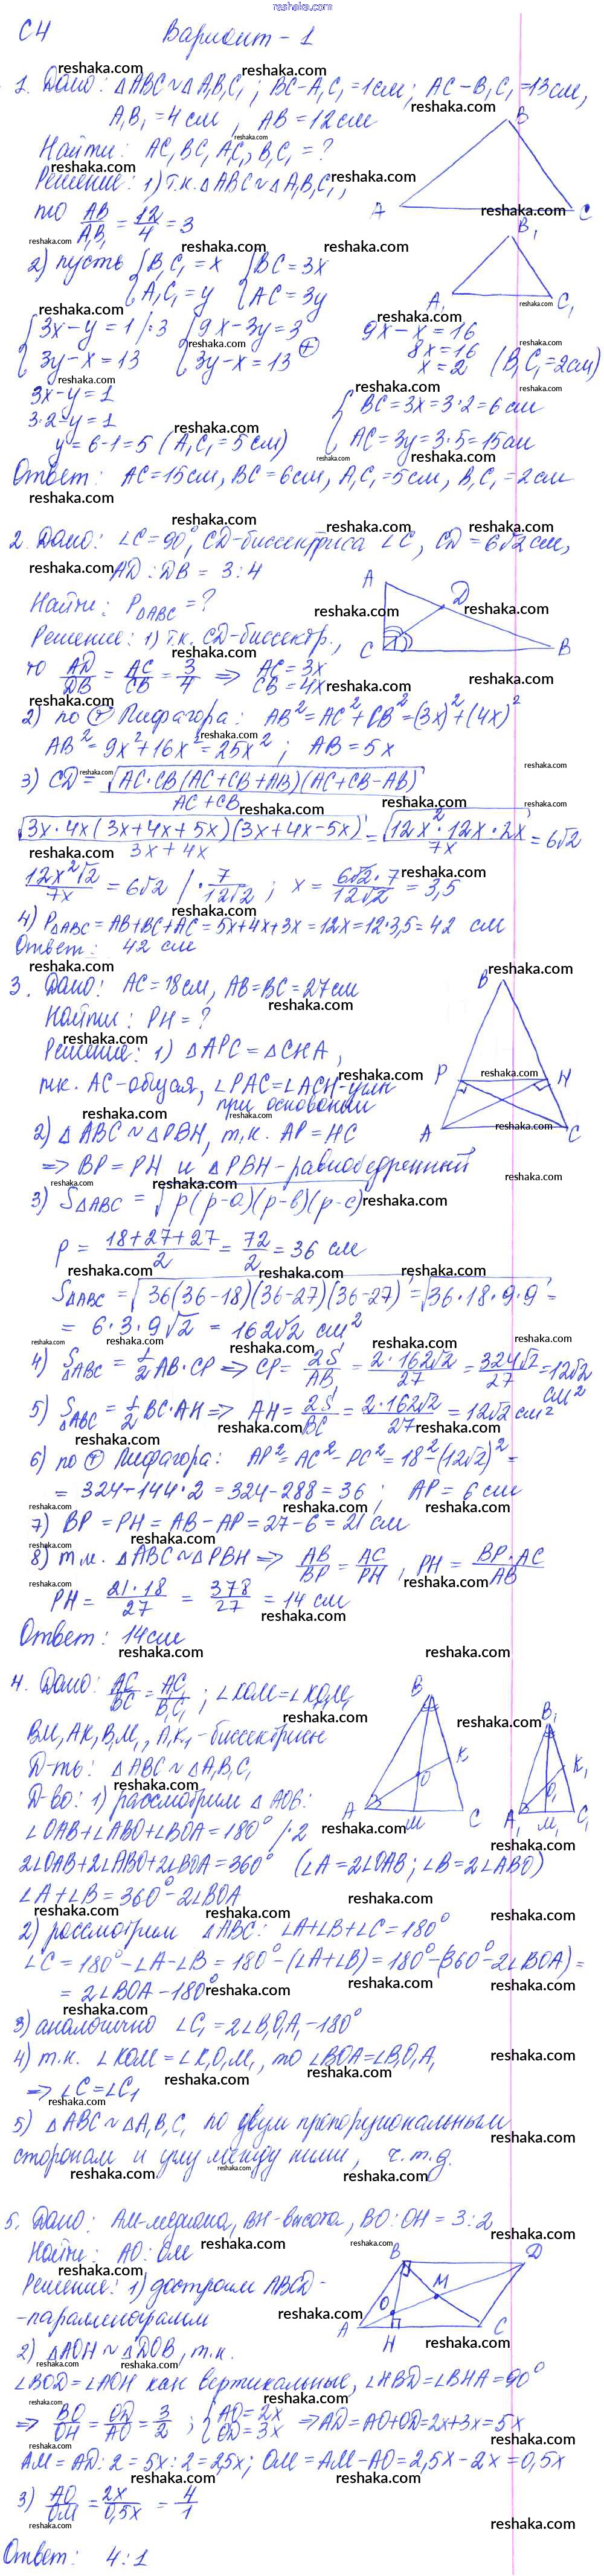 reshaka.com
С4 Вариант - 1
1. Дано: △ABC ~ △A₁B₁C₁; BC-A₁C₁=1см; AC-B₁C₁=13см,
A₁B₁=4см, AB=12см
Найти: AC, BC, A₁C₁, B₁C₁=?
Решение: 1) т.к. △ABC ~ △A₁B₁C₁,
то AB/A₁B₁ = 12/4 = 3
2) пусть { B₁C₁=x { BC=3x
A₁C₁=y AC=3y
{ 3x-y=1 /·3 { 9x-3y=3 9x-x=16
3y-x=13 3y-x=13 (+) 8x=16
x=2 (B₁C₁=2см)
3x-y=1
3·2-y=1 { BC=3x=3·2=6 см
y=6-1=5 (A₁C₁=5см) AC=3y=3·5=15см
Ответ: AC=15см, BC=6см, A₁C₁=5см, B₁C₁=2см
2. Дано: ∠C=90°, CD-биссектриса ∠C, CD=6√2см,
AD:DB=3:4
Найти: P△ABC=?
Решение: 1) т.к. CD-биссектр.,
то AD/DB = AC/CB = 3/4 ⇒ AC=3x
CB=4x
2) по т Пифагора: AB²=AC²+CB²=(3x)²+(4x)²
AB²=9x²+16x²=25x²; AB=5x
3) CD=√(AC·CB(AC+CB+AB)(AC+CB-AB))/(AC+CB)
√(3x·4x(3x+4x+5x)(3x+4x-5x))/(3x+4x) = √(12x²·12x·2x)/7x = 6√2
12x²√2/7x = 6√2 /·7/12√2; x = 6√2·7/12√2 = 3,5
4) P△ABC=AB+BC+AC=5x+4x+3x=12x=12·3,5=42 см
Ответ: 42 см
3. Дано: AC=18см, AB=BC=27см
Найти: PH=?
Решение: 1) △APC=△CHA,
т.к. AC-общая, ∠PAC=∠ACH-углы
при основании
2) △ABC ~ △PBH, т.к. AP=HC
⇒ BP=PH и △PBH-равнобедренный
3) S△ABC=√(p(p-a)(p-b)(p-c))
p = (18+27+27)/2 = 72/2 = 36 см
S△ABC=√(36(36-18)(36-27)(36-27))=√(36·18·9·9)=
=6·3·9√2=162√2 см²
4) S△ABC=1/2 AB·CP ⇒ CP=2S/AB=2·162√2/27=324√2/27=12√2
см²
5) S△ABC=1/2 BC·AH ⇒ AH=2S/BC=2·162√2/27=12√2 см²
6) по т Пифагора: AP²=AC²-PC²=18²-(12√2)²=
=324-144·2=324-288=36; AP=6 см
7) BP=PH=AB-AP=27-6=21 см
8) т.к. △ABC ~ △PBH ⇒ AB/BP = AC/PH, PH = BP·AC/AB
PH = 21·18/27 = 378/27 = 14 см
Ответ: 14см
4. Дано: AC/BC = A₁C₁/B₁C₁; ∠KOM=∠K₁O₁M₁
BM, AK, B₁M₁, A₁K₁-биссектрисы
Д-ть: △ABC ~ △A₁B₁C₁
Д-во: 1) рассмотрим △AOB:
∠OAB+∠ABO+∠BOA=180° /·2
2∠OAB+2∠ABO+2∠BOA=360° (∠A=2∠OAB; ∠B=2∠ABO)
∠A+∠B=360°-2∠BOA
2) рассмотрим △ABC: ∠A+∠B+∠C=180°
∠C=180°-∠A-∠B=180°-(∠A+∠B)=180°-(360°-2∠BOA)=
=2∠BOA-180°
3) аналогично ∠C₁=2∠B₁O₁A₁-180°
4) т.к. ∠KOM=∠K₁O₁M₁, то ∠BOA=∠B₁O₁A₁
⇒ ∠C=∠C₁
5) △ABC ~ △A₁B₁C₁ по двум пропорциональным
сторонам и углу между ними, ч.т.д.
5. Дано: AM-медиана, BH-высота, BO:OH=3:2
Найти: AO:OM
Решение: 1) достроим ABCD-
-параллелограмм
2) △AOH ~ △DOB, т.к.
∠BOD=∠AOH как вертикальные, ∠HBD=∠BHA=90°
⇒ BO/OH = OD/AO = 3/2; { AO=2x OD=3x ⇒ AD=AO+OD=2x+3x=5x
AM=AD:2=5x:2=2,5x; OM=AM-AO=2,5x-2x=0,5x
3) AO/OM = 2x/0,5x = 4/1
Ответ: 4:1